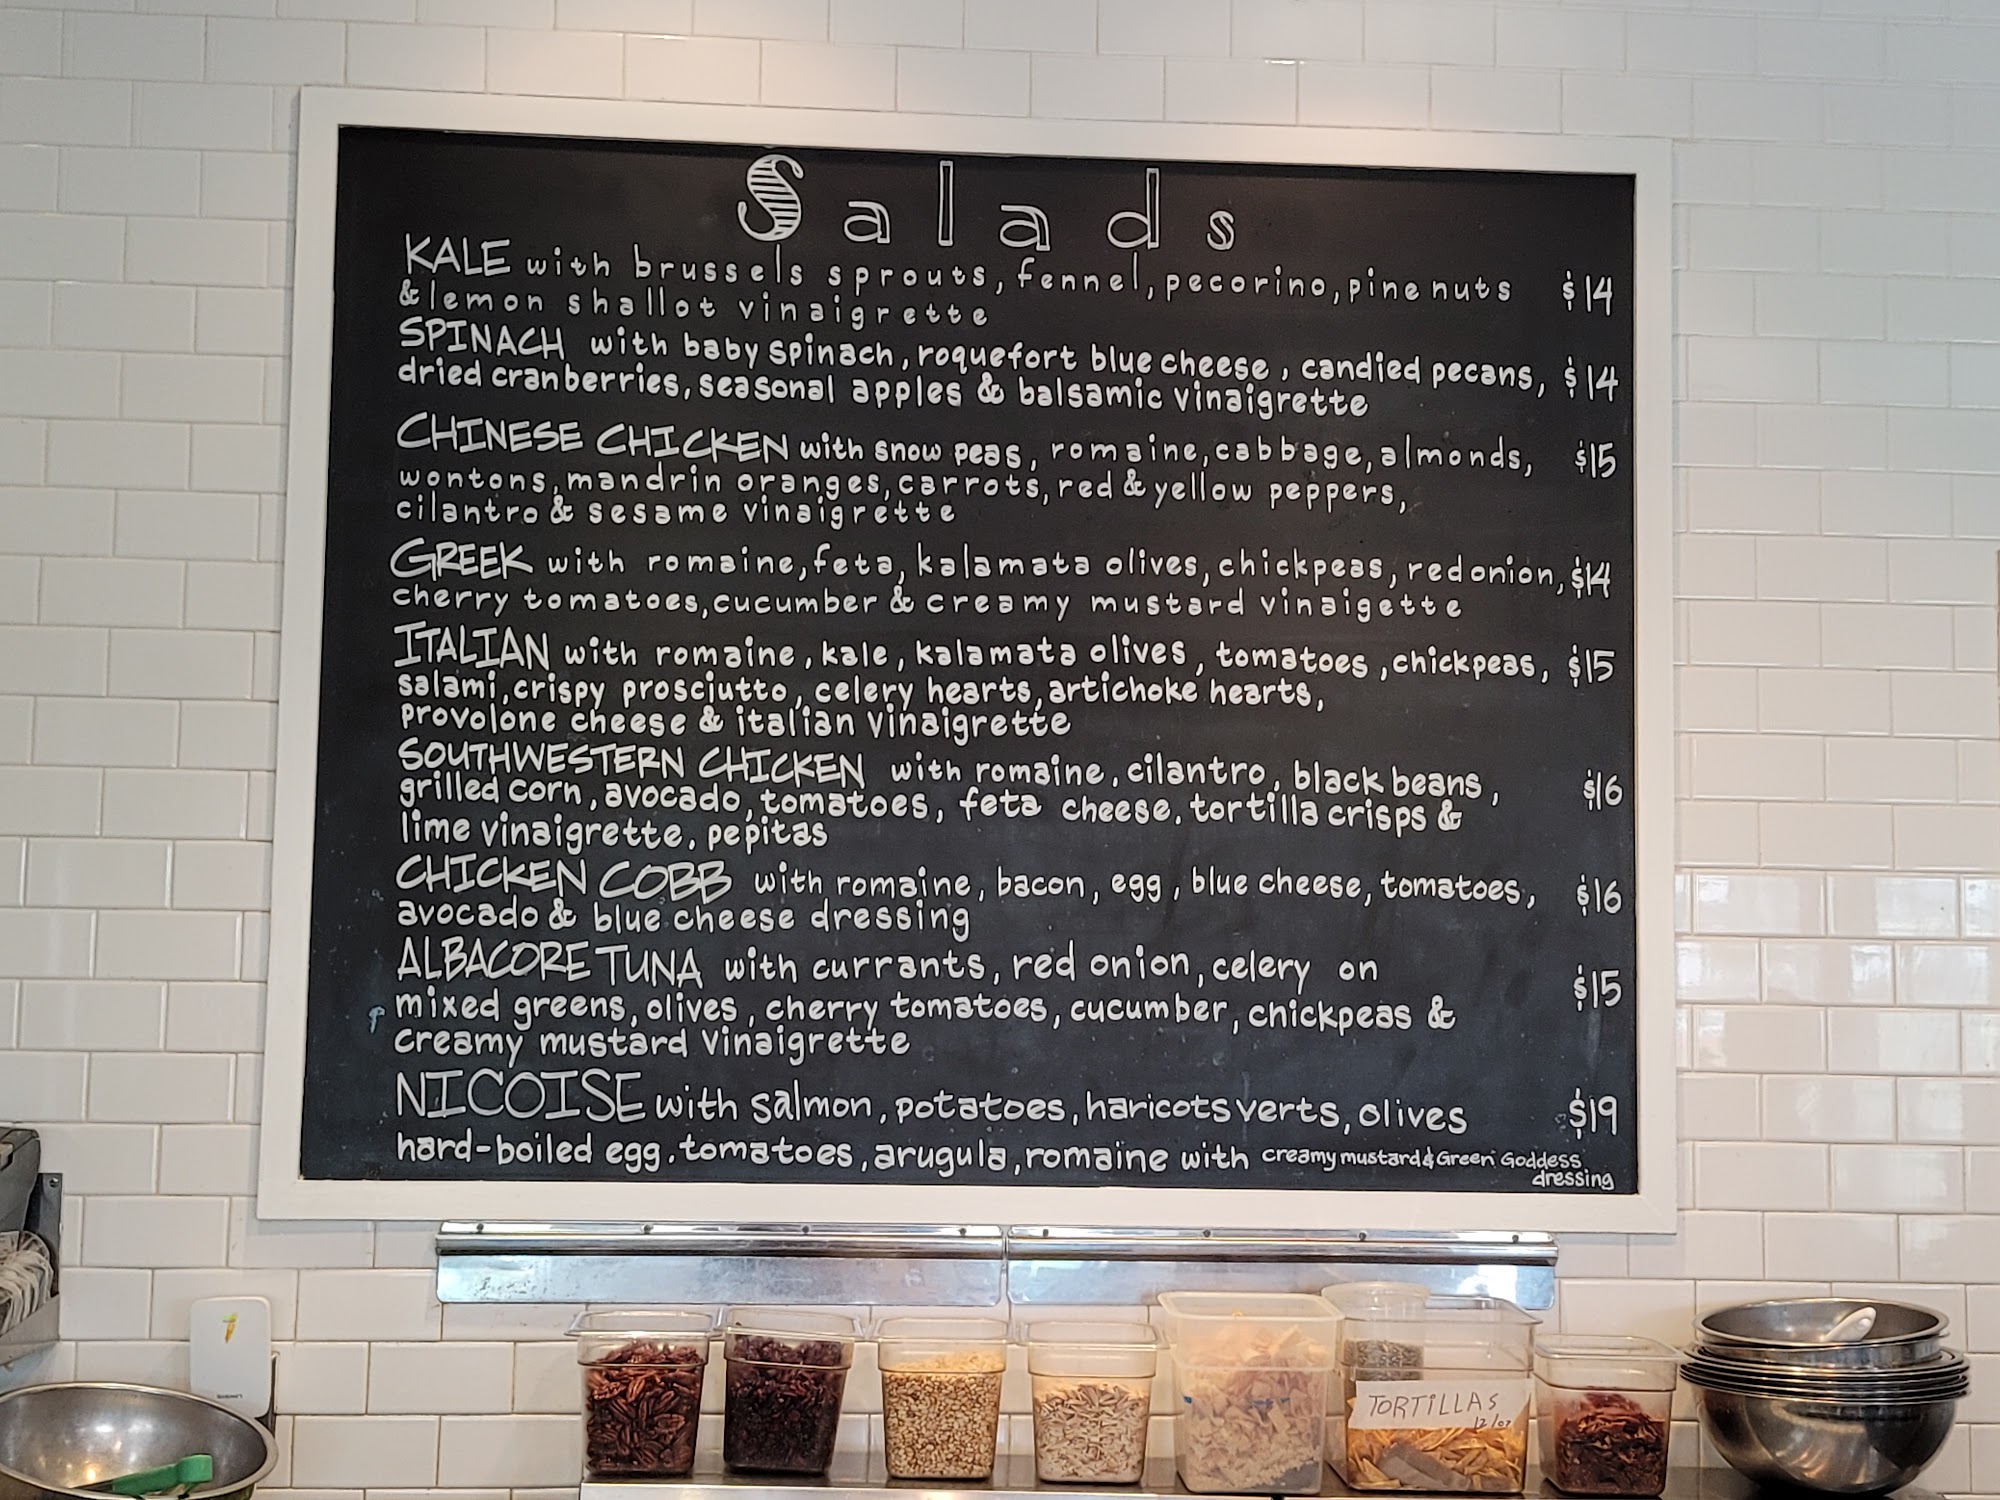 Salads
KALE with brussels sprouts, fennel, pecorino, pine nuts $14
& lemon shallot vinaigrette
SPINACH with baby spinach, roquefort blue cheese, candied pecans, $14
dried cranberries, seasonal apples & balsamic vinaigrette
CHINESE CHICKEN with snow peas, romaine, cabbage, almonds, $15
wontons, mandrin oranges, carrots, red & yellow peppers,
cilantro & sesame vinaigrette
GREEK with romaine, feta, kalamata olives, chickpeas, red onion, $14
cherry tomatoes, cucumber & creamy mustard vinaigette
ITALIAN with romaine, kale, kalamata olives, tomatoes, chickpeas, $15
salami, crispy prosciutto, celery hearts, artichoke hearts,
provolone cheese & italian vinaigrette
SOUTHWESTERN CHICKEN with romaine, cilantro, black beans, $16
grilled corn, avocado, tomatoes, feta cheese, tortilla crisps &
lime vinaigrette, pepitas
CHICKEN COBB with romaine, bacon, egg, blue cheese, tomatoes, $16
avocado & blue cheese dressing
ALBACORE TUNA with currants, red onion, celery on $15
mixed greens, olives, cherry tomatoes, cucumber, chickpeas &
creamy mustard vinaigrette
NICOISE with salmon, potatoes, haricots verts, olives $19
hard-boiled egg, tomatoes, arugula, romaine with creamy mustard & Green Goddess
dressing
TORTILLAS